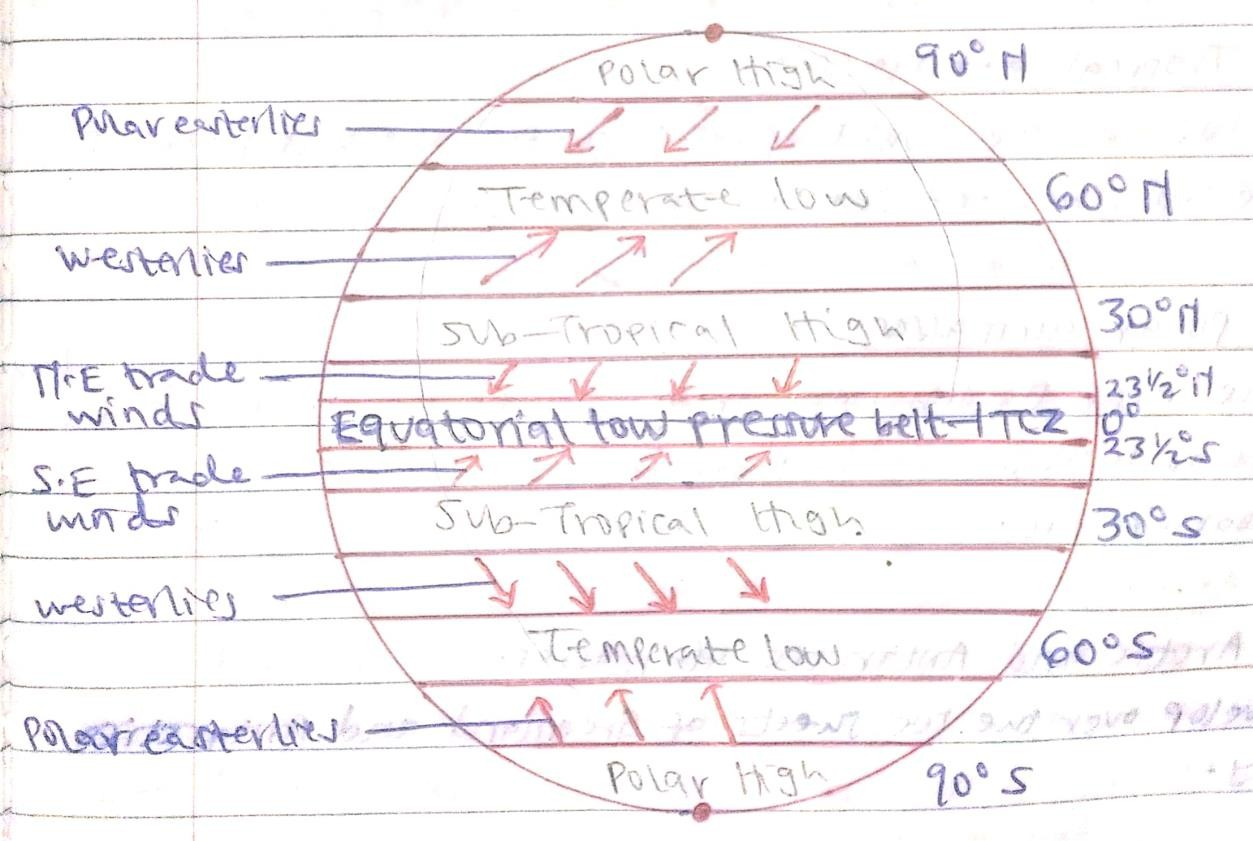 Polar High
90° N
Polar easterlies
Temperate low
60° N
Westerlies
Sub-Tropical High
30° N
N.E trade
winds
23½° N
Equatorial low pressure belt-ITCZ
0°
23½° S
S.E trade
winds
Sub-Tropical High.
30° S
westerlies
Temperate low
60° S
Polar easterlies
Polar High
90° S